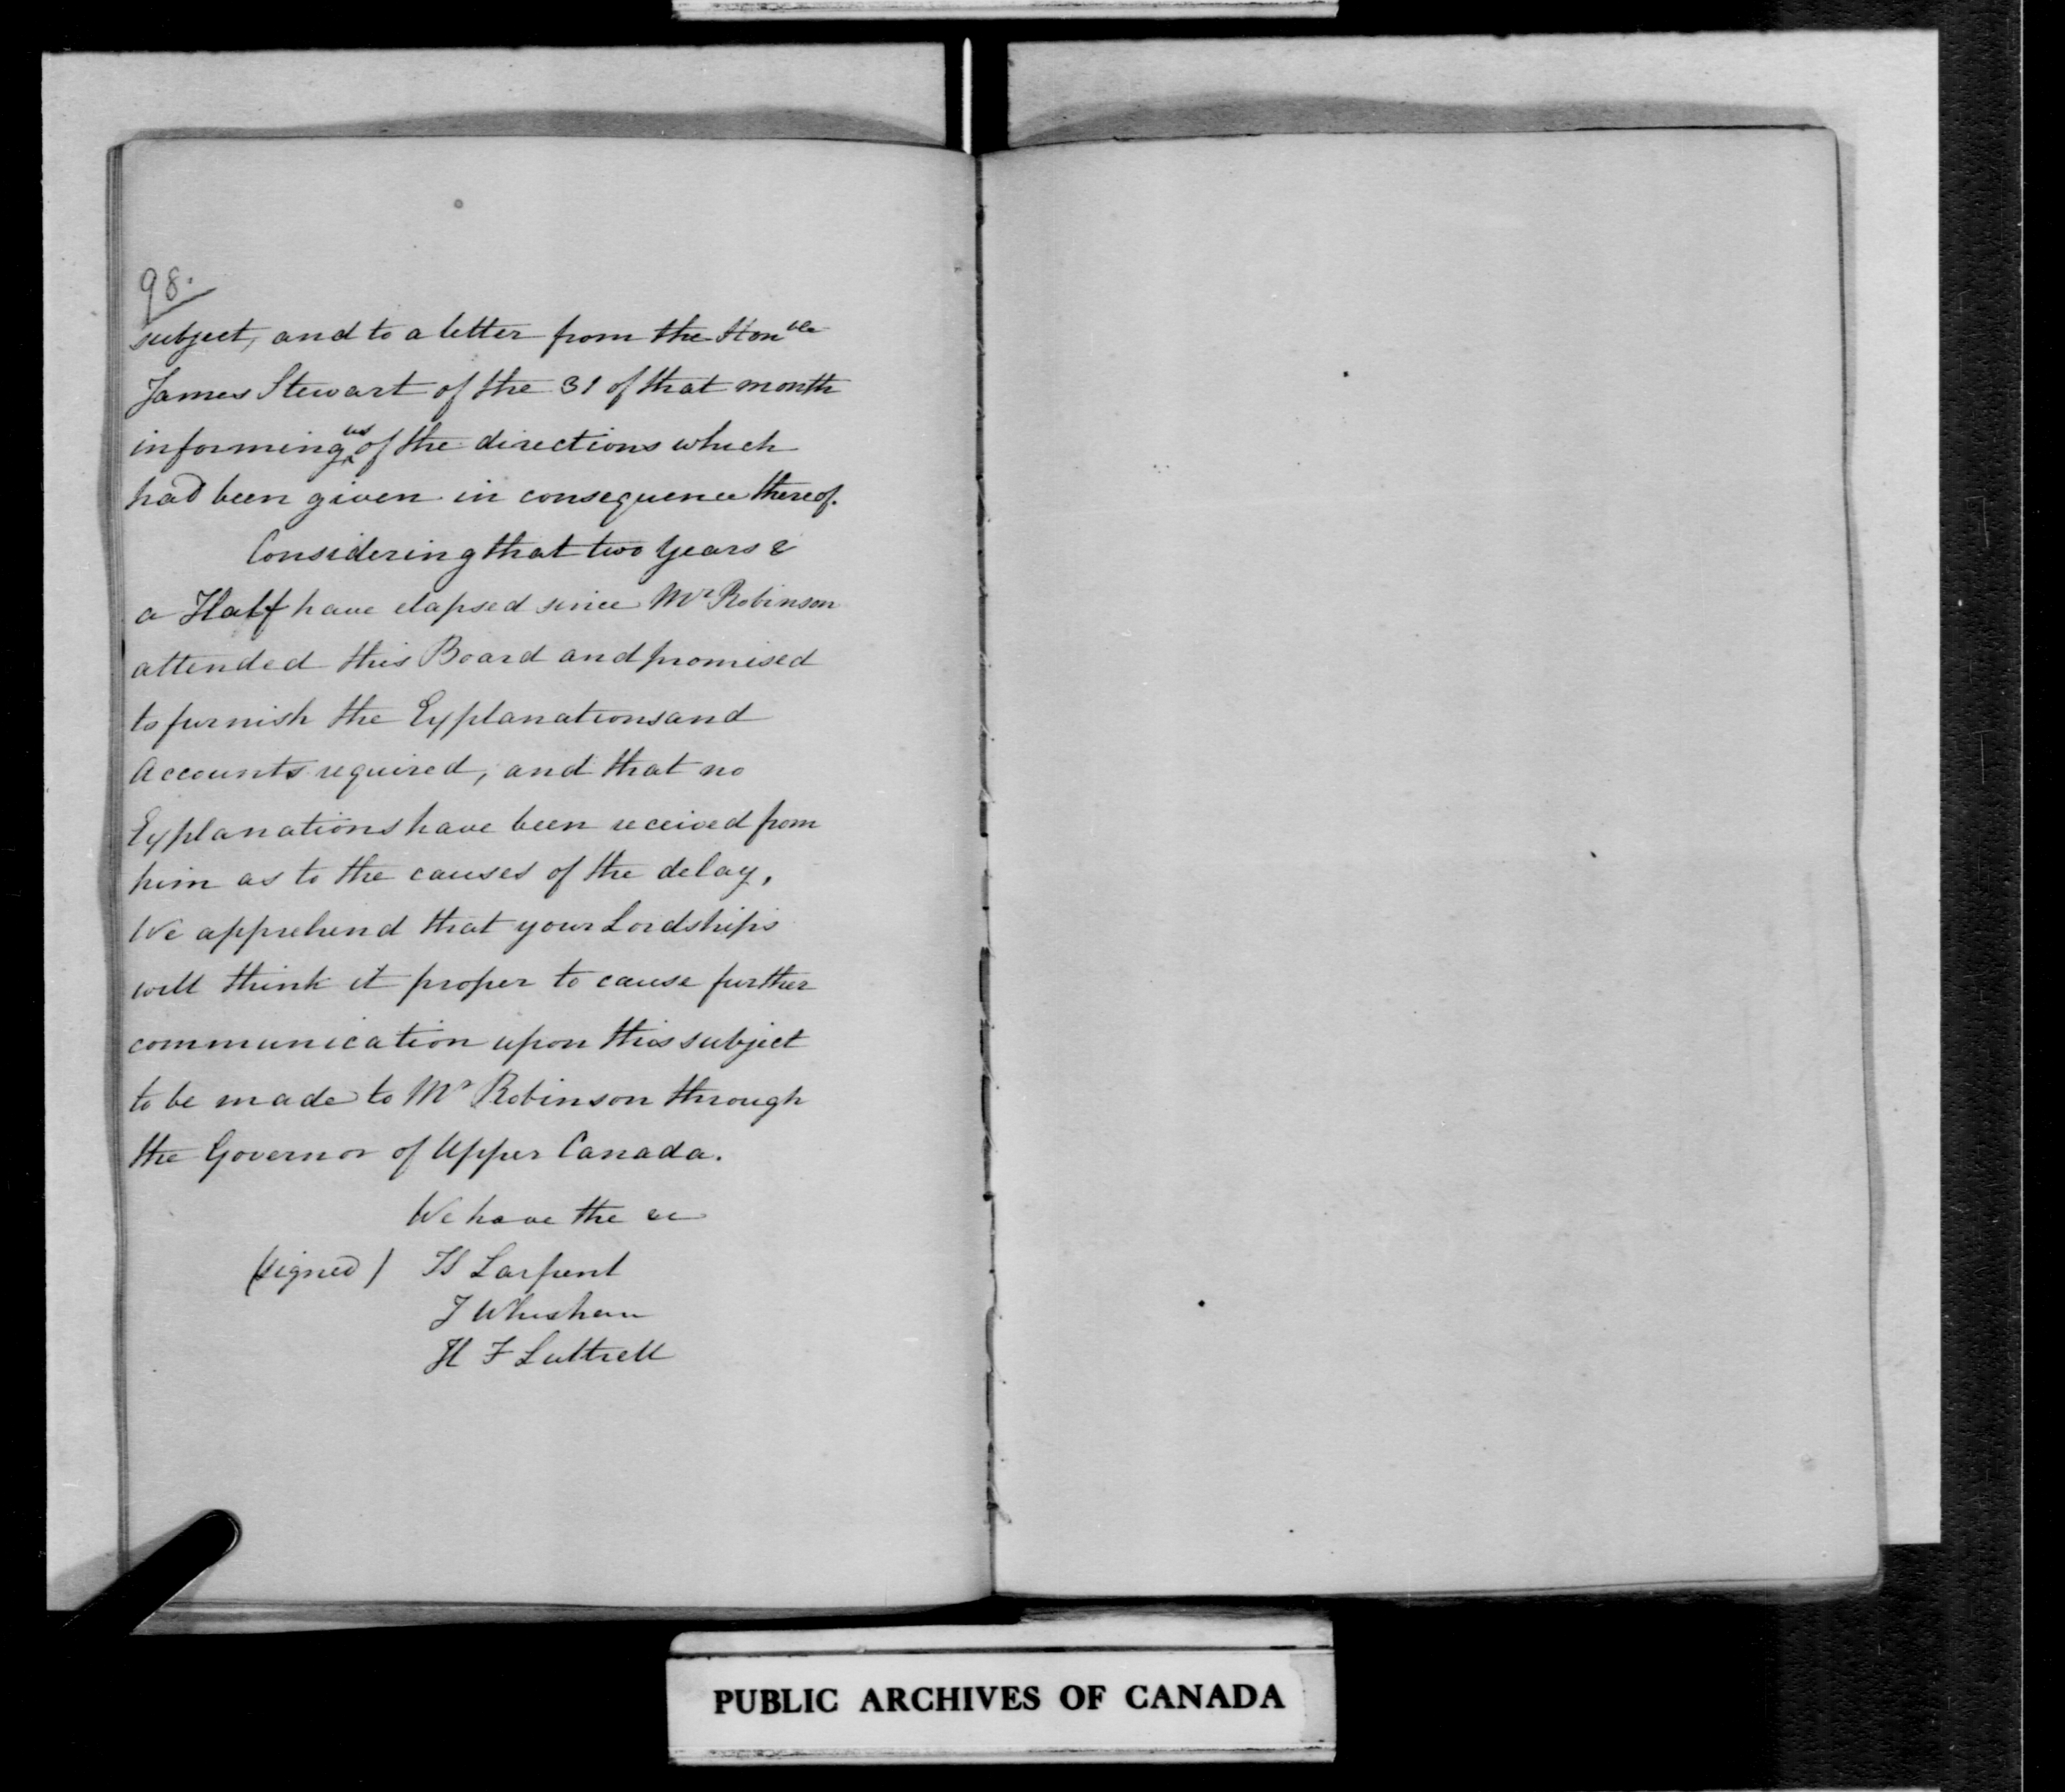 98.
subject, and to a letter from the Honble
James Stewart of the 31 of that month
informing us of the directions which
had been given in consequence thereof.
Considering that two Years &
a Half have elapsed since Mr Robinson
attended this Board and promised
to furnish the Explanations and
Accounts required, and that no
Explanations have been received from
him as to the causes of the delay,
We apprehend that your Lordships
will think it proper to cause further
communication upon this subject
to be made to Mr Robinson through
the Governor of Upper Canada.
We have the &c
(signed) Larpent
J Whishaw
H F Luttrell
PUBLIC ARCHIVES OF CANADA